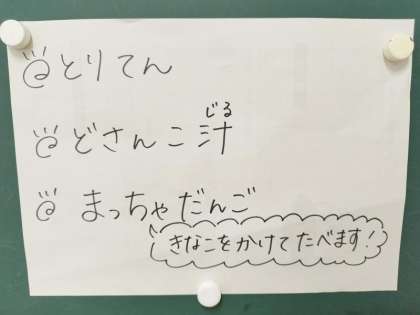 とりてん
じる
どさんこ汁
まっちゃだんご
きなこをかけてたべます!